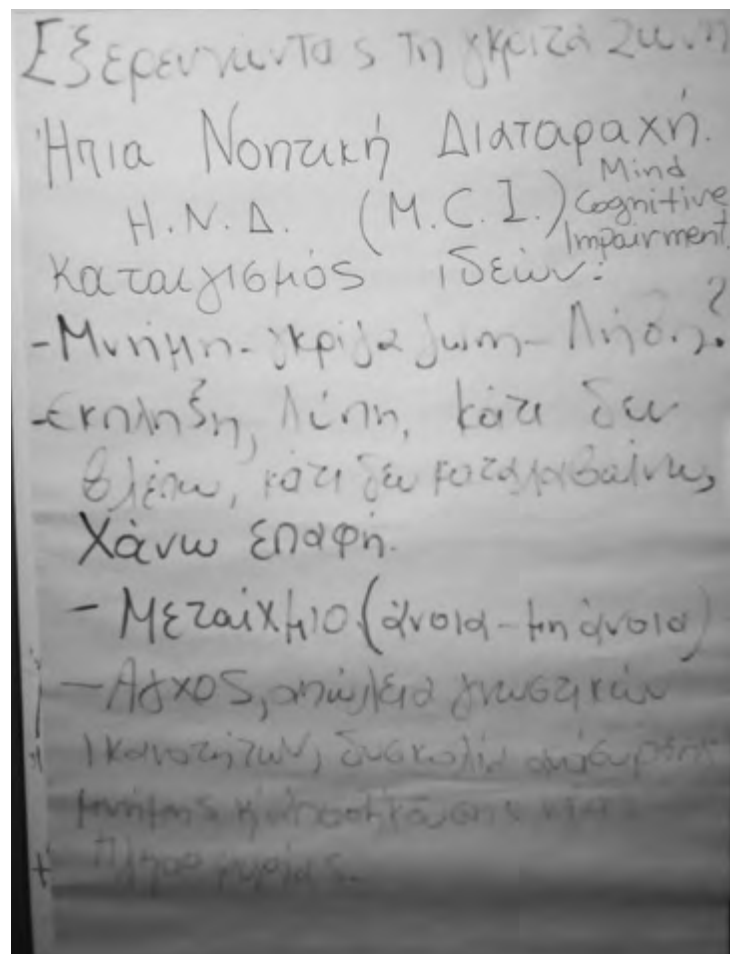 Εξερευνώντας τη γκρίζα ζώνη
Ήπια Νοητική Διαταραχή.
Η.Ν.Δ. (M.C.I.) Mind
Cognitive
Impairment
Καταιγισμός ιδεών:
-Μνήμη-γκρίζα ζώνη-Λήθη?
-έκπληξη, λύπη, κάτι δεν
βλέπω, κάτι δεν καταλαβαίνω,
Χάνω επαφή.
- Μεταίχμιο (άνοια-μη άνοια)
- Άγχος, απώλεια γνωστικών
ικανοτήτων, δυσκολία ανάσυρσης
μνήμης ή αποθήκευσης νέας
πληροφορίας.